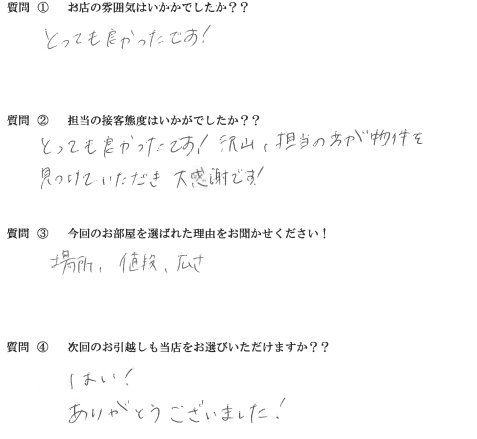 質問 ① お店の雰囲気はいかかでしたか？？
とっても良かったです！
質問 ② 担当の接客態度はいかがでしたか？？
とっても良かったです！沢山、担当の方が物件を
見つけていただき 大感謝です！
質問 ③ 今回のお部屋を選ばれた理由をお聞かせください！
場所、値段、広さ
質問 ④ 次回のお引越しも当店をお選びいただけますか？？
はい！
ありがとうございました！